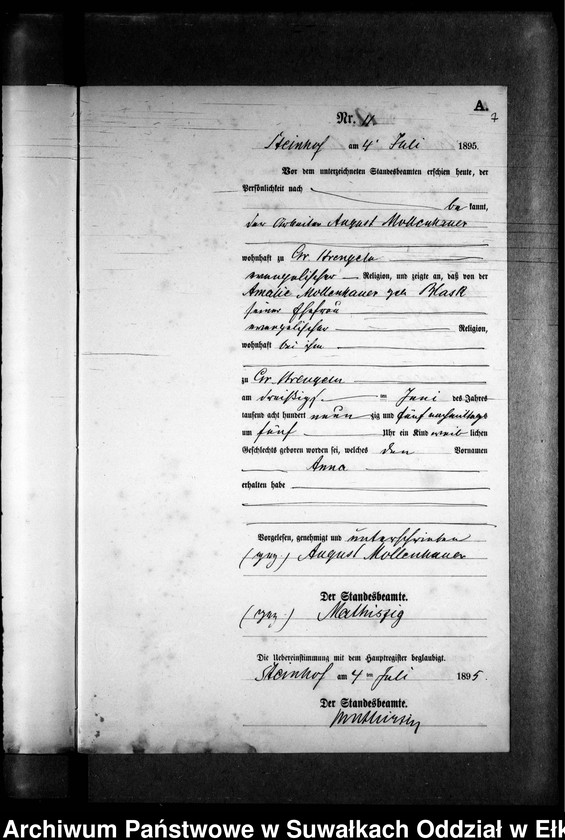 A.
7
Nr. 11
Steinhof am 4 Juli 1895.
Vor dem unterzeichneten Standesbeamten erschien heute, der
Persönlichkeit nach
be kannt,
der Arbeiter August Mollenhauer
wohnhaft zu Gr. Strengeln
evangelischer Religion, und zeigte an, daß von der
Amalie Mollenhauer geb. Blask
seiner Ehefrau
evangelischer Religion,
wohnhaft bei ihm
zu Gr. Strengeln
am dreißigst. en Juni des Jahres
tausend acht hundert neun zig und fünf nachmittags
um fünf Uhr ein Kind weib lichen
Geschlechts geboren worden sei, welches den Vornamen
Anna
erhalten habe
Vorgelesen, genehmigt und unterschrieben
(gez.) August Mollenhauer
Der Standesbeamte.
(gez.)
Die Uebereinstimmung mit dem Hauptregister beglaubigt.
Steinhof am 4 ten Juli 1895.
Der Standesbeamte.
Archiwum Państwowe w Suwałkach Oddział w Ełk